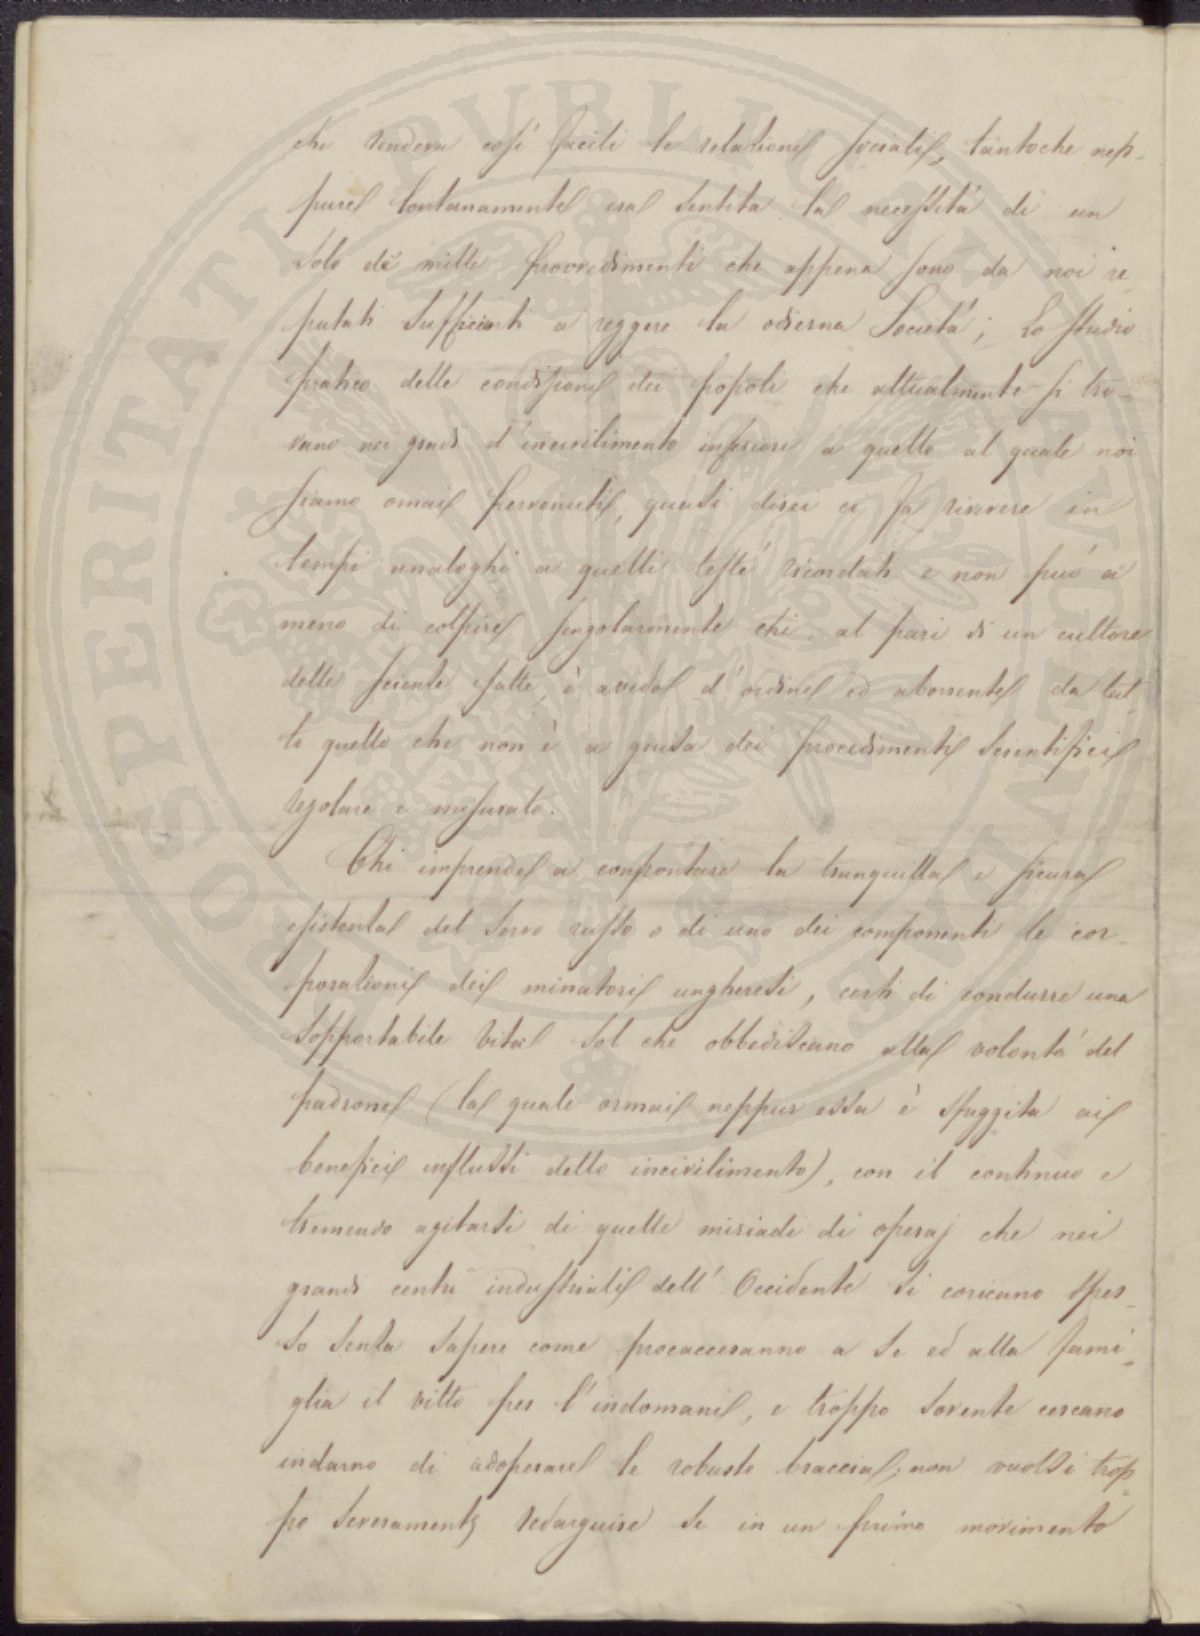 che rendeva così facili le relazioni sociali, tantoche nep-
pure lontanamente era sentita la necessità di un
solo dei mille provvedimenti che appena sono da noi re-
putati sufficienti a reggere la odierna Società; Lo studio
pratico delle condizioni dei popoli che attualmente si tro-
vano nei gradi d'incivilimento inferiori a quello al quale noi
siamo omai pervenuti, quasi direi ci fa rivivere in
tempi analoghi a quelli testé ricordati e non può a
meno di colpire singolarmente chi, al pari di un cultore
delle scienze esatte, è avido d'ordine ed aborrente da tut-
to quello che non è a guisa dei procedimenti scientifici
regolare e misurato.
Chi imprende a confrontare la tranquilla e sicura
esistenza del servo russo o di uno dei componenti le cor-
porazioni dei minatori ungheresi, certi di condurre una
sopportabile vita sol che obbediscano alla volontà del
padrone (la quale ormai neppur essa è sfuggita ai
benefici influssi dello incivilimento), con il continuo e
tremendo agitarsi di quelle miriadi di operaj che nei
grandi centri industriali dell'Occidente si coricano spes-
so senza sapere come procacceranno a se ed alla fami-
glia il vitto per l'indomani, e troppo sovente cercano
indarno di adoperare le robuste braccia; non vuolsi trop-
po severamente redarguire se in un primo movimento
PROSPERITATI PVBLICAE AVGENDAE